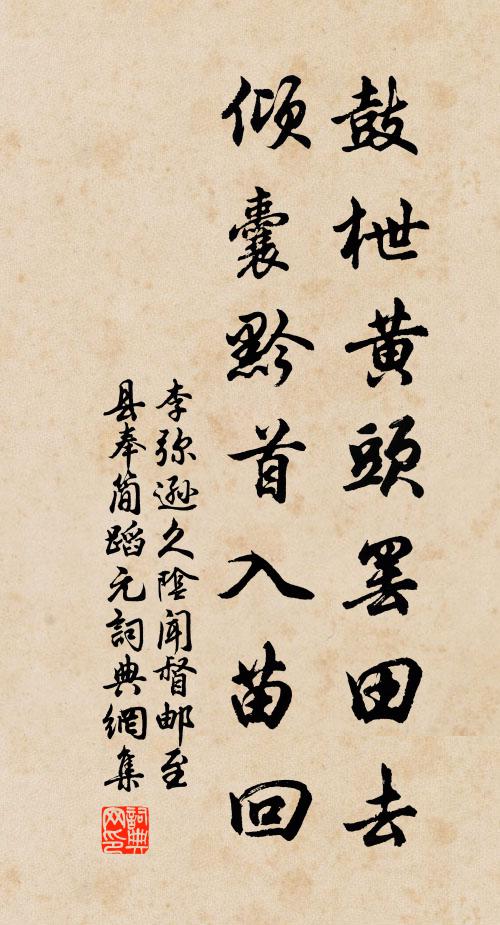 鼓枻黄頭罢田去
傾囊黔首入苗回
李弥遜久陰闻督邮至
县奉简蹈元詞典網集
詞典网印